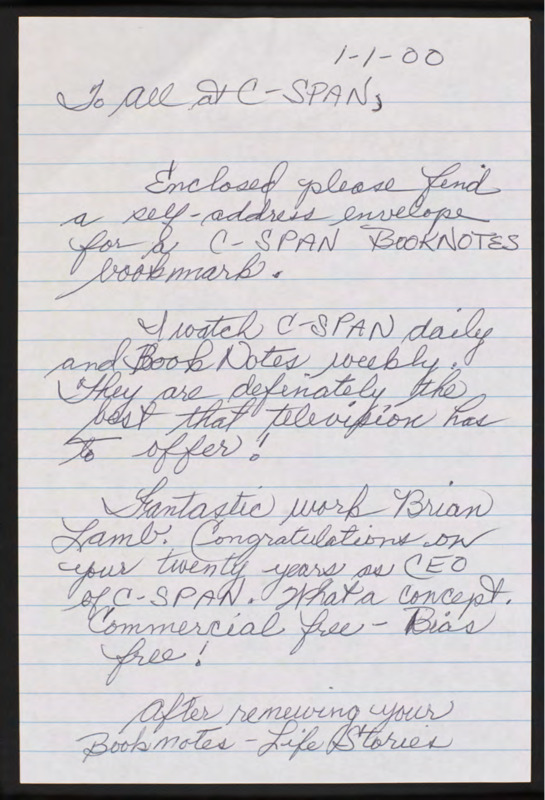 1-1-00
To all at C-SPAN,
Enclosed please find
a self-address envelope
for a C-SPAN BOOKNOTES
bookmark.
I watch C-SPAN daily
and Book Notes weekly.
They are definately the
best that television has
to offer!
Fantastic work Brian
Lamb. Congratulations on
your twenty years as CEO
of C-SPAN. What a concept.
Commercial free - Bias
free!
After renewing your
Booknotes - Life Stories